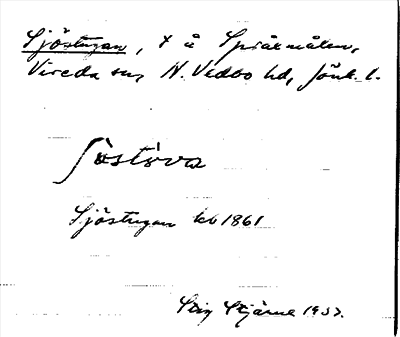 Sjöstugan, t å Spräkmålen,
Vireda sn, N. Vedbo hd, Jönk. l.
ʃöstóva
Sjöstugan kb 1861
Stig Stjärne 1933.